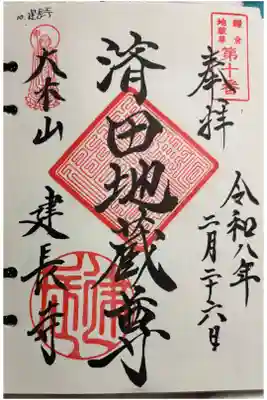 鎌倉
地蔵尊
第十番
奉拝
令和八年
二月二十六日
済田地蔵尊
大本山 建長寺
10. 建長寺